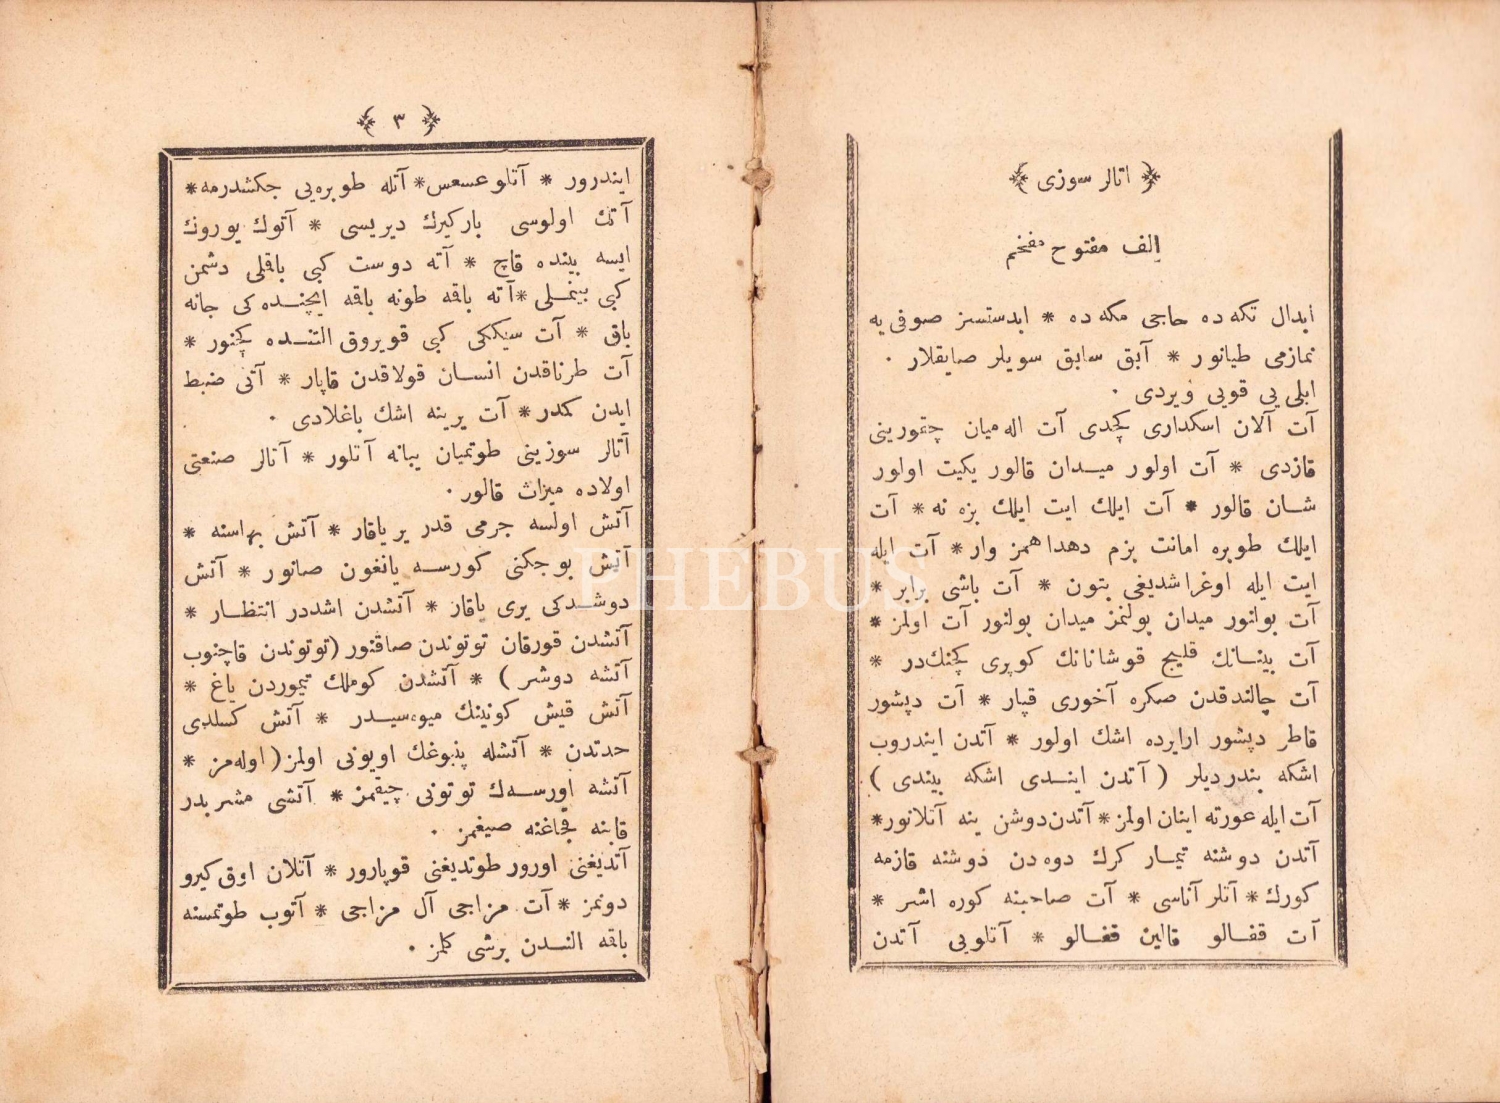 اتالر سوزی
الف مفتوح مفخم
ابدال تكه ده حاجی مكه ده * ابدستسز صوفی یه
نمازمی طیانور * آبق سابق سویلر صایقلار .
ابلی یی قوبی ویردی .
آت آلان اسكداری كچدی آت اله میان چقورینی
قازدی * آت اولور میدان قالور یكیت اولور
شان قالور * آت ایلك ایت ایلك بزه نه * آت
ایلك طوبره امانت بزم دهداهمز وار * آت ایله
ایت ایله اوغراشدیغی بتون * آت باشی برابر *
آت بولنور میدان بولنمز میدان بولنور آت اولمز *
آت بیننك قلیج قوشانانك كوپری كچنك در *
آت چالندقدن صكره آخوری قپار * آت دپشور
قاطر دپشور ارایرده اشك اولور * آتدن ایندروب
اشكه بندردیلر ( آتدن ایندی اشكه بیندی )
آت ایله عورته اینان اولمز * آتدن دوشن ینه آتلانور *
آتدن دوشنه تیمار كرك دوه دن دوشنه قازمه
كورك * آتلر آناسی * آت صاحبنه كوره اشر *
آت قفالو قالین قفالو * آتلویی آتدن
٣
ایندرور * آتلو عسعس * آتله طوبره یی جكشدرمه *
آتك اولوسی باركیرك دیریسی * آتوك یوروك
ایسه بینده قاچ * آته دوست كبی باقلی دشمن
كبی بینملی * آته باقه طونه باقه ایچنده كی جانه
باق * آت سیككی كبی قویروق التنده كچنور *
آت طرناقدن انسان قولاقدن قاپار * آتی ضبط
ایدن كمدر * آت یرینه اشك باغلادی .
آتالر سوزینی طوتمیان یبانه آتلور * آتالر صنعتی
اولاده میراث قالور .
آتش اولسه جرمی قدر یر یاقار * آتش بهاسنه *
آتش بوجكنی كورسه یانغون صانور * آتش
دوشدكی یری یاقار * آتشدن اشددر انتظار *
آتشدن قورقان توتوندن صاقنور ( توتوندن قاچنوب
آتشه دوشر ) * آتشدن كوملك تیموردن یاغ *
آتش قیش كونینك میوه سیدر * آتش كسلدی
حدتدن * آتشله پنبوغك اویونی اولمز ( اوله مز *
آتشه اورسه ك توتونی چیقمز * آتشی مشربدر
قابنه قجاغنه صیغمز .
آتدیغنی اورور طوتدیغنی قوپارور * آتلان اوق كیرو
دونمز * آت مزاجی آل مزاجی * آتوب طوتمسنه
باقه الندن برشی كلمز .
PHEBUS